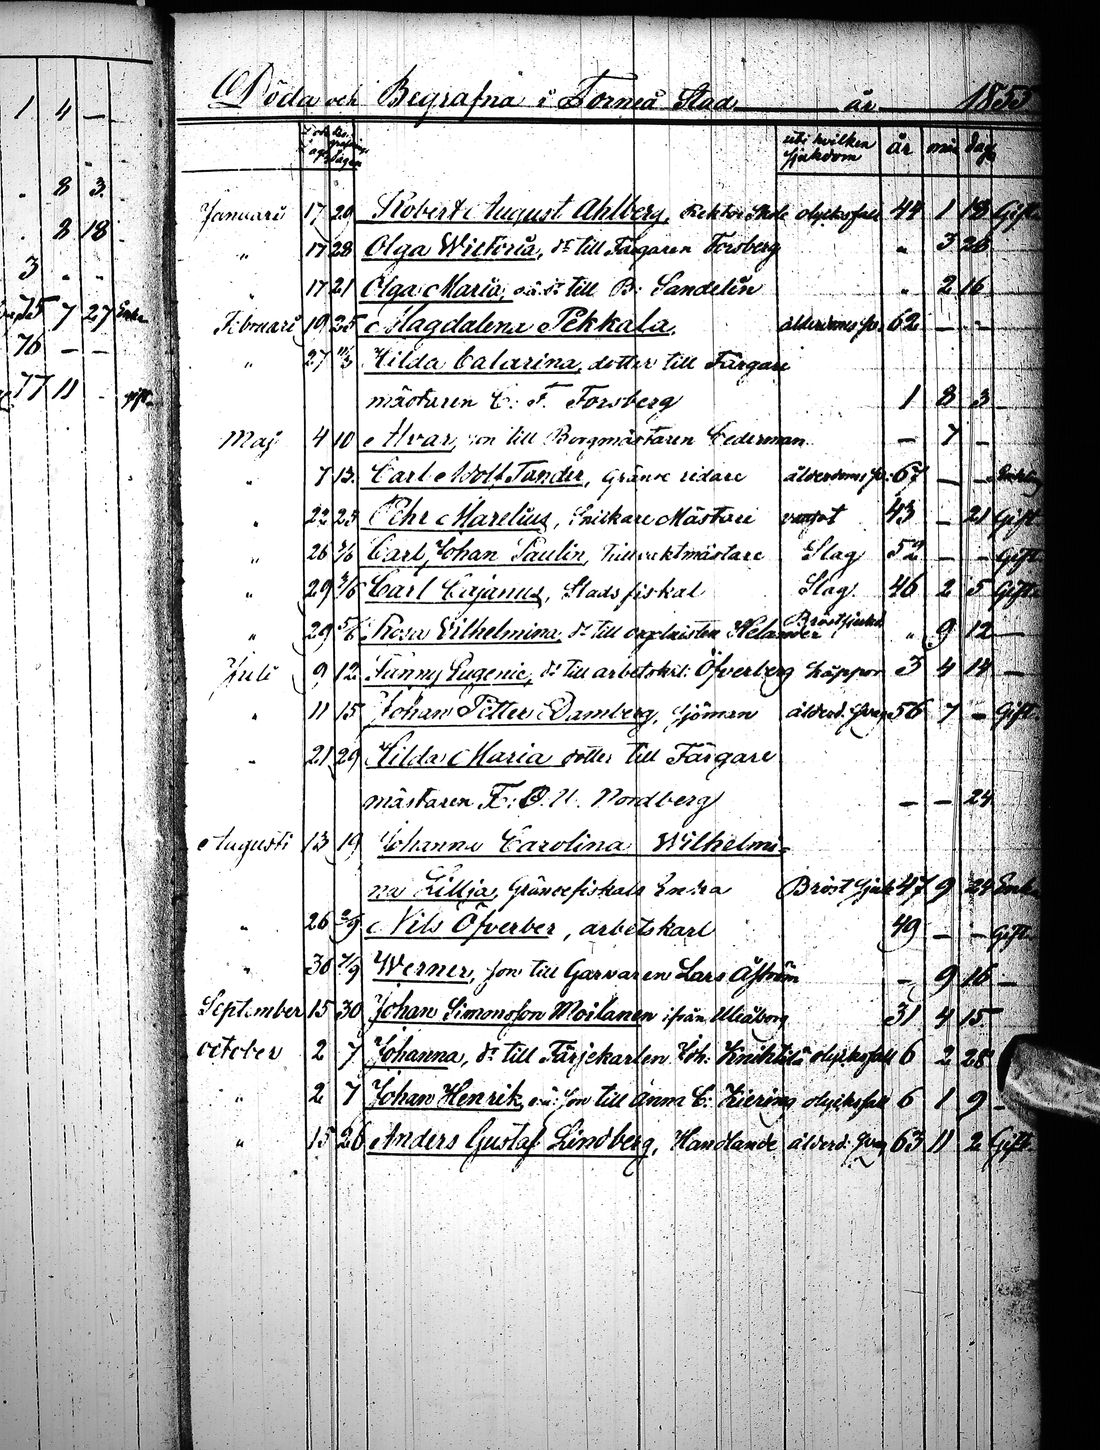 1 4 —
. 8 3.
. 8 18
3 . .
75 7 27 Enka
76 — —
77 11 . gift
Döda och Begrafna i Torneå Stad år 1855
Döds dagen Begrafnings dagen uti hvilken sjukdom år mån dag
Januari 17 20 Robert August Ahlberg, Rektor Skole olycksfall 44 1 18 Gift
" 17 28 Olga Wictoria, dr till Färgaren Forsberg " 3 26
" 17 21 Olga Maria, oä. dr till B. Sandelin " 2 16
Februari 19 25 Magdalena Pekkala, ålderdoms sv. 62 — —
" 27 11/3 Hilda Catarina, dotter till Färgare
mästaren C. F. Forsberg 1 8 3
Maj 4 10 Alvar, son till Borgmästaren Cederman — 7 —
" 7 13 Carl Adolf Tander, Gränse ridare ålderdoms sv. 67 — —
" 22 25 Pehr Marelius, Snickare Mästare 43 — 21 Gift
" 26 3/6 Carl Johan Paulin, Tullvaktmästare Slag 52 — — Gift
" 29 3/6 Carl Cajanus, Stadsfiskal Slag 46 2 5 Gift
" 29 5/6 Rosa Vilhelmina, dr till orgelnisten Helander Bröstsjukd " 9 12 —
Juli 9 12 Fanny Eugenie, dr till arbetskd: Öfverberg koppor 3 4 14 —
" 11 15 Johan Petter Damberg, Sjöman ålderd. svag 56 7 — Gift
" 21 29 Hilda Maria dotter till Färgare
mästaren F. O. U. Nordberg — — 24
Augusti 13 19 Johanna Carolina Wilhelmi-
na Lillja, Gränsefiskals Enka Bröst Sjuk 47 9 24 Enka
" 26 2/9 Nils Öfverber, arbetskarl 49 — — Gift
" 30 7/9 Werner, son till Garvaren Lars Åström — 9 16 —
September 15 30 Johan Simonsson Moilanen ifrån Uleåborg 31 4 15
October 2 7 Johanna, dr till Färjekarlen Joh. Knihtilä olycksfall 6 2 28
" 2 7 Johan Henrik, oä. son till Anna C. Ziering olycksfall 6 1 9 —
" 15 26 Anders Gustaf Lindberg, Handlande ålderd. svag 63 11 2 Gift